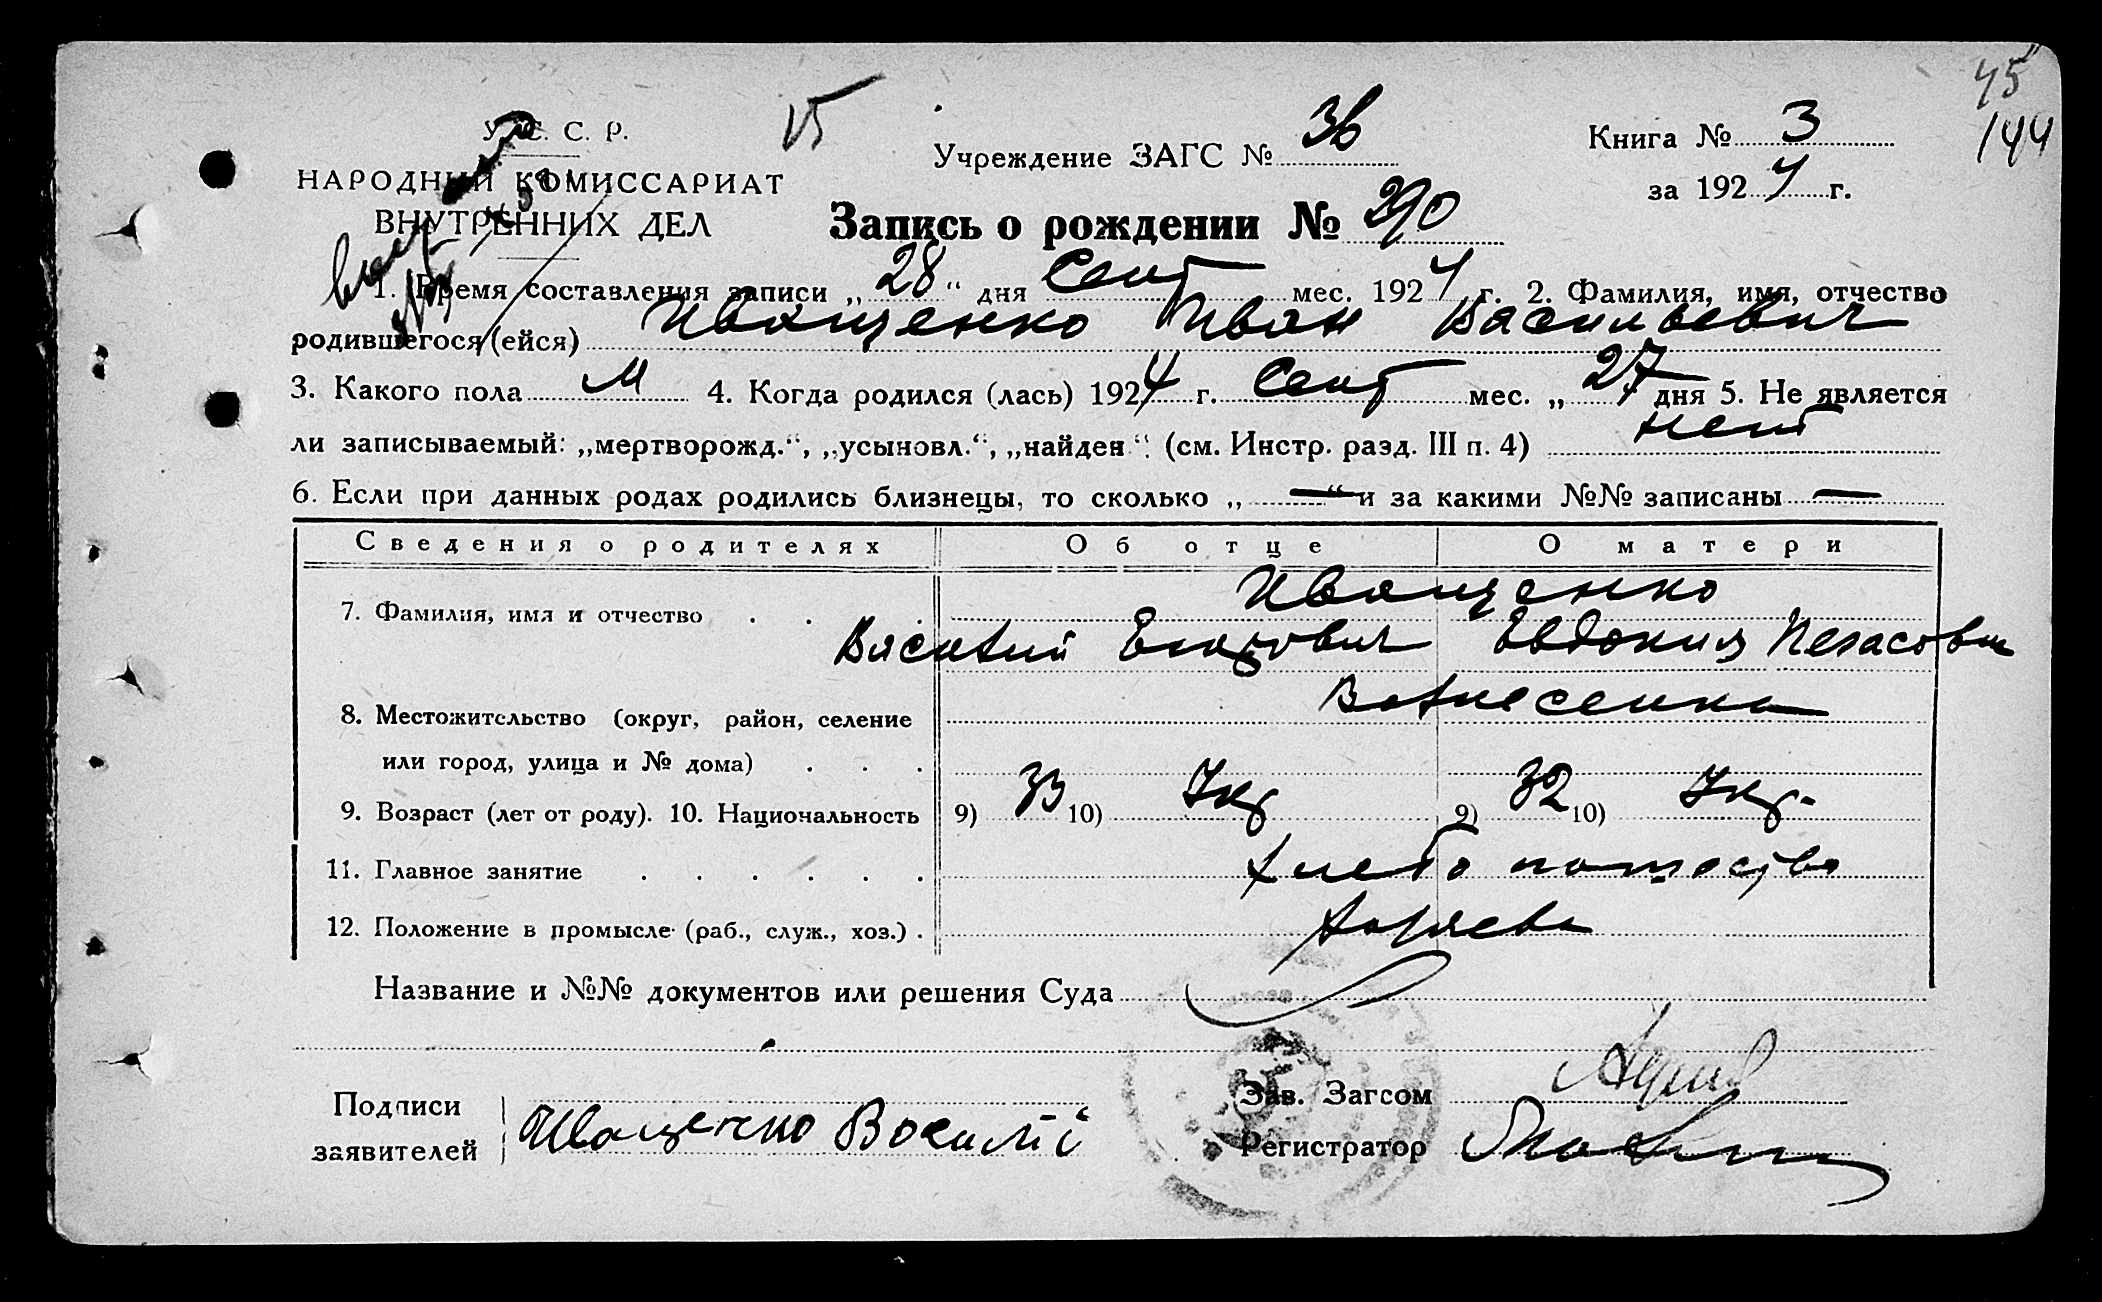 45
144
У. С. С. Р.
НАРОДНЫЙ КОМИССАРИАТ
ВНУТРЕННИХ ДЕЛ
Учреждение ЗАГС № 36
Книга № 3
за 1924 г.
Запись о рождении № 290
1. Время составления записи „28“ дня Сент мес. 1924 г. 2. Фамилия, имя, отчество
родившегося (ейся) Иващенко Иван Васильевич
3. Какого пола М 4. Когда родился (лась) 1924 г. Сент мес. „27 дня 5. Не является
ли записываемый: „мертворожд.“, „усыновл.“, „найден“ (см. Инстр. разд. III п. 4) нет
6. Если при данных родах родились близнецы, то сколько „—“ и за какими №№ записаны —
Сведения о родителях Об отце О матери
7. Фамилия, имя и отчество . . . Иващенко
Василий Евдокия
8. Местожительство (округ, район, селение Вознесенка
или город, улица и № дома) . . .
9. Возраст (лет от роду). 10. Национальность 9) 33 10) Укр 9) 32 10) Укр.
11. Главное занятие . . . . . . хлебопашество
12. Положение в промысле (раб., служ., хоз.) . хозяева
Название и №№ документов или решения Суда
Подписи
заявителей Иващенко Василий
Зав. Загсом
Регистратор